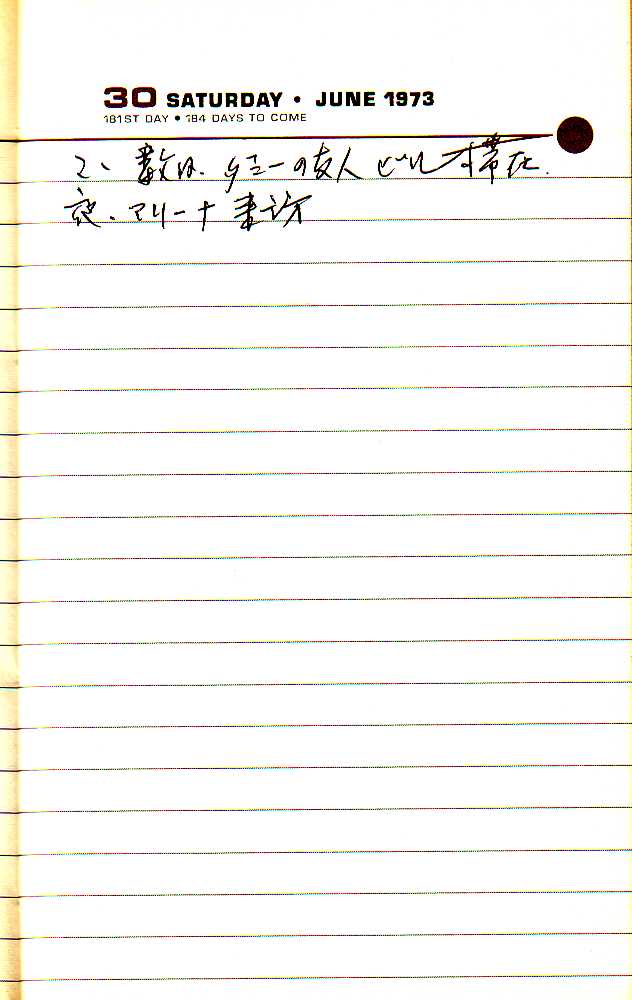 30 SATURDAY • JUNE 1973
181ST DAY • 184 DAYS TO COME
ここ数日、ケニーの友人ビル滞在.
夜、マリーナ来訪